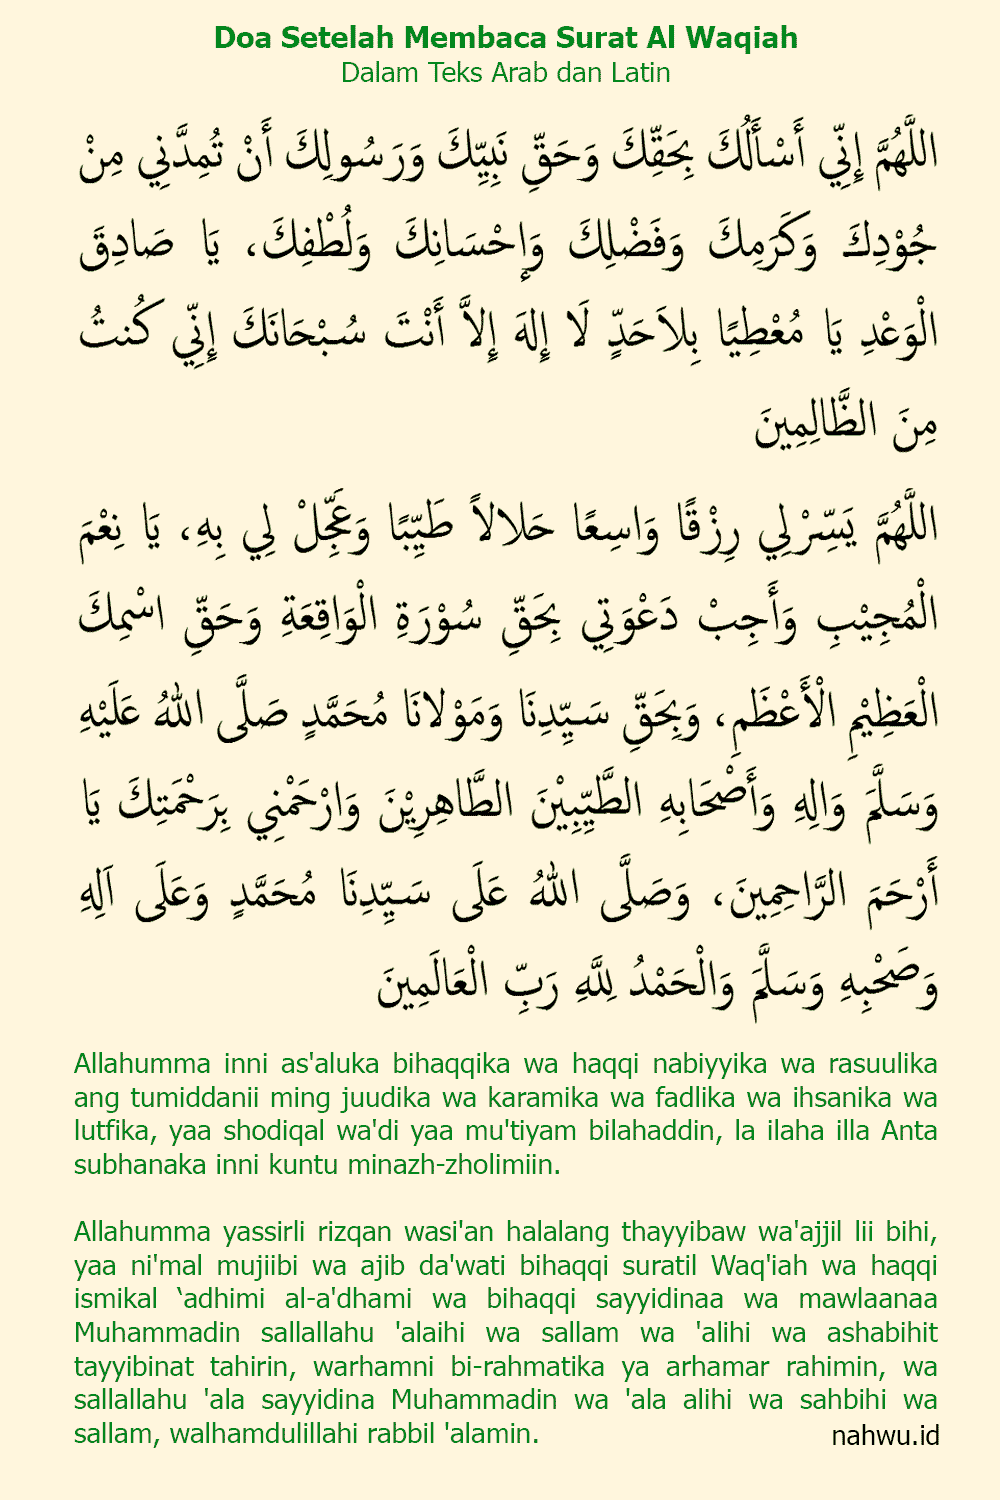 Doa Setelah Membaca Surat Al Waqiah
Dalam Teks Arab dan Latin
اللَّهُمَّ إِنِّي أَسْأَلُكَ بِحَقِّكَ وَحَقِّ نَبِيِّكَ وَرَسُولِكَ أَنْ تُمِدَّنِي مِنْ
جُوْدِكَ وَكَرَمِكَ وَفَضْلِكَ وَإِحْسَانِكَ وَلُطْفِكَ، يَا صَادِقَ
الْوَعْدِ يَا مُعْطِيًا بِلاَحَدٍّ لَا إِلهَ إِلاَّ أَنْتَ سُبْحَانَكَ إِنِّي كُنتُ
مِنَ الظَّالِمِينَ
اللَّهُمَّ يَسِّرْلِي رِزْقًا وَاسِعًا حَلالاً طَيِّبًا وَعَجِّلْ لِي بِهِ، يَا نِعْمَ
الْمُجِيْبِ وَأَجِبْ دَعْوَتِي بِحَقِّ سُوْرَةِ الْوَاقِعَةِ وَحَقِّ اسْمِكَ
الْعَظِيْمِ الْأَعْظَمِ، وَبِحَقِّ سَيِّدِنَا وَمَوْلانَا مُحَمَّدٍ صَلَّى اللهُ عَلَيْهِ
وَسَلَّمَ وَالِهِ وَأَصْحَابِهِ الطَّيِّبِيْنَ الطَّاهِرِيْنَ وَارْحَمْنِي بِرَحْمَتِكَ يَا
أَرْحَمَ الرَّاحِمِينَ، وَصَلَّى اللهُ عَلَى سَيِّدِنَا مُحَمَّدٍ وَعَلَى اَلِهِ
وَصَحْبِهِ وَسَلَّمَ وَالْحَمْدُ لِلَّهِ رَبِّ الْعَالَمِينَ
Allahumma inni as'aluka bihaqqika wa haqqi nabiyyika wa rasuulika
ang tumiddanii ming juudika wa karamika wa fadlika wa ihsanika wa
lutfika, yaa shodiqal wa'di yaa mu'tiyam bilahaddin, la ilaha illa Anta
subhanaka inni kuntu minazh-zholimiin.
Allahumma yassirli rizqan wasi'an halalang thayyibaw wa'ajjil lii bihi,
yaa ni'mal mujiibi wa ajib da'wati bihaqqi suratil Waq'iah wa haqqi
ismikal ‘adhimi al-a'dhami wa bihaqqi sayyidinaa wa mawlaanaa
Muhammadin sallallahu 'alaihi wa sallam wa 'alihi wa ashabihit
tayyibinat tahirin, warhamni bi-rahmatika ya arhamar rahimin, wa
sallallahu 'ala sayyidina Muhammadin wa 'ala alihi wa sahbihi wa
sallam, walhamdulillahi rabbil 'alamin.
nahwu.id